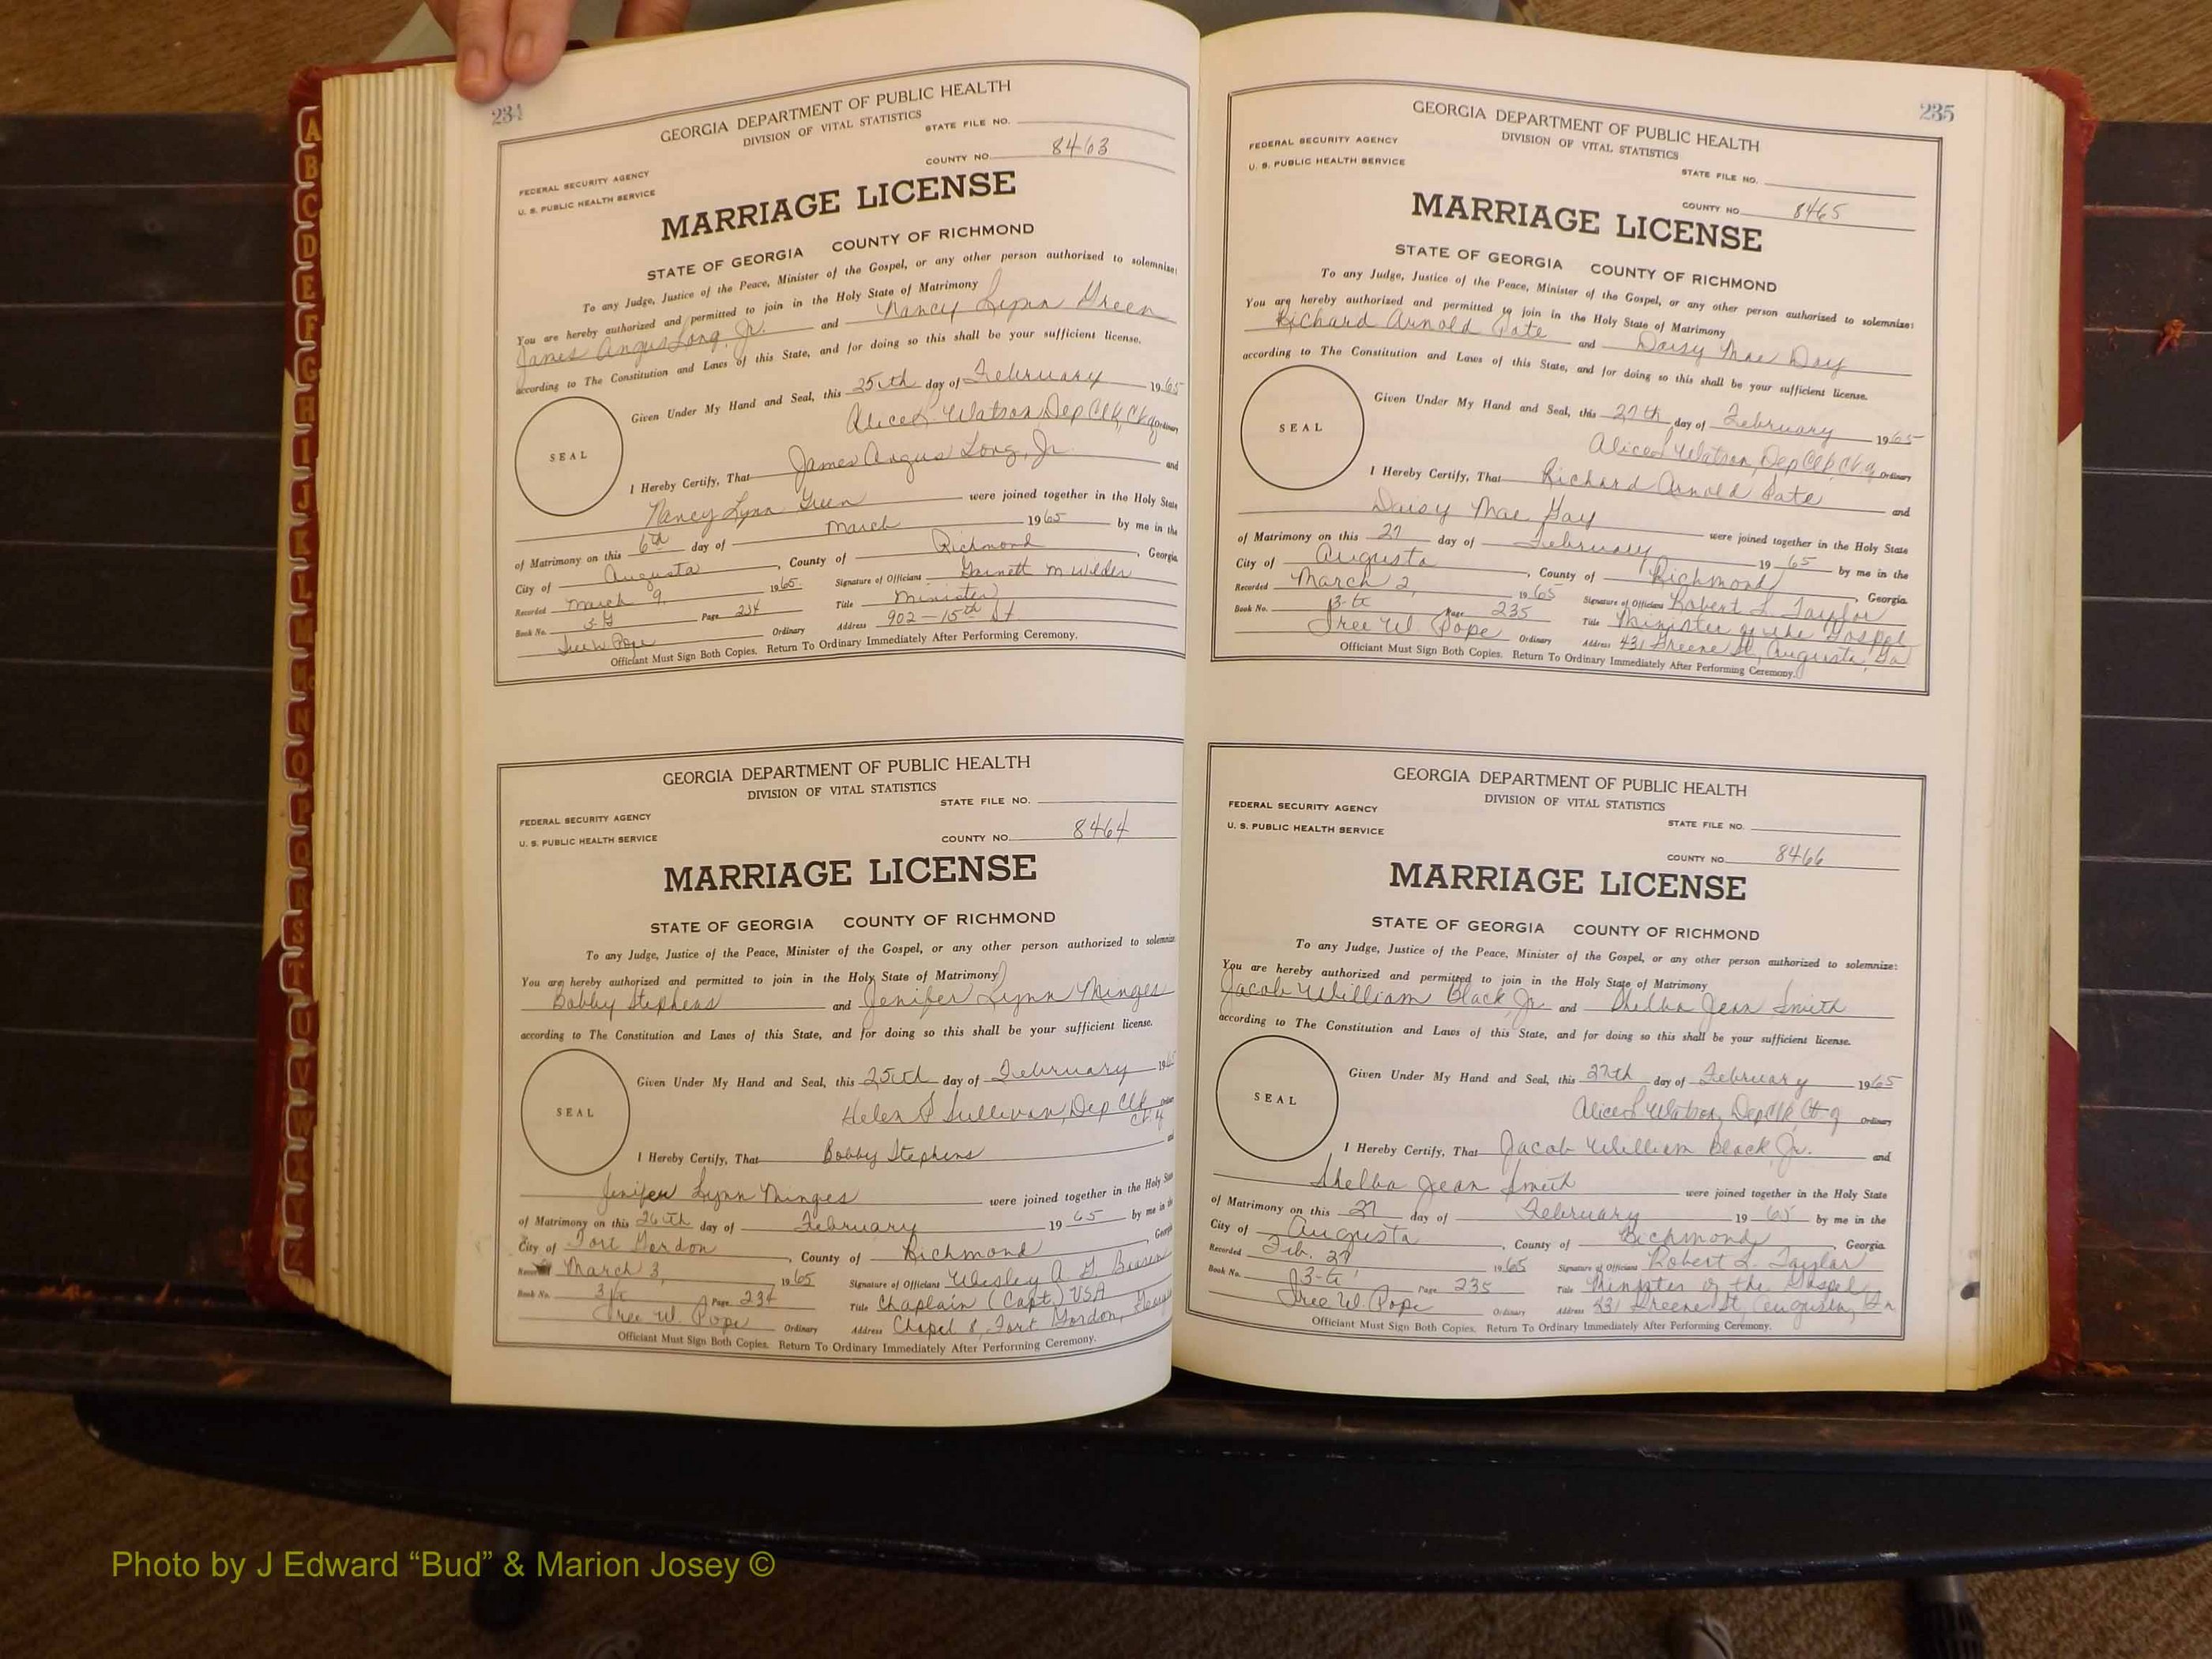 234
GEORGIA DEPARTMENT OF PUBLIC HEALTH
DIVISION OF VITAL STATISTICS
STATE FILE NO.
FEDERAL SECURITY AGENCY
U. S. PUBLIC HEALTH SERVICE
COUNTY NO. 8463
MARRIAGE LICENSE
STATE OF GEORGIA COUNTY OF RICHMOND
To any Judge, Justice of the Peace, Minister of the Gospel, or any other person authorized to solemnize:
You are hereby authorized and permitted to join in the Holy State of Matrimony
James Angus Long, Jr. and Nancy Lynn Green
according to The Constitution and Laws of this State, and for doing so this shall be your sufficient license.
Given Under My Hand and Seal, this 25th day of February 1965
SEAL
Alice L Watson, Dep Clk, Ct. of Ordinary
I Hereby Certify, That James Angus Long, Jr. and
Nancy Lynn Green were joined together in the Holy State
of Matrimony on this 6th day of March 1965 by me in the
City of Augusta, County of Richmond, Georgia.
Recorded March 9, 1965. Signature of Officiant Garnett M Wilder
Book No. 3-G Page 234 Title Minister
Tree W. Pope Ordinary Address 902 - 15th St
Officiant Must Sign Both Copies. Return To Ordinary Immediately After Performing Ceremony.
GEORGIA DEPARTMENT OF PUBLIC HEALTH
DIVISION OF VITAL STATISTICS
STATE FILE NO.
FEDERAL SECURITY AGENCY
U. S. PUBLIC HEALTH SERVICE
COUNTY NO. 8464
MARRIAGE LICENSE
STATE OF GEORGIA COUNTY OF RICHMOND
To any Judge, Justice of the Peace, Minister of the Gospel, or any other person authorized to solemnize
You are hereby authorized and permitted to join in the Holy State of Matrimony
Bobby Stephens and Jenifer Lynn Minges
according to The Constitution and Laws of this State, and for doing so this shall be your sufficient license.
Given Under My Hand and Seal, this 25th day of February 1965
SEAL
Helen S Sullivan, Dep Clk
I Hereby Certify, That Bobby Stephens and
Jenifer Lynn Minges were joined together in the Holy State
of Matrimony on this 26th day of February 1965 by me in the
City of Fort Gordon, County of Richmond, Georgia
Recorded March 3, 1965 Signature of Officiant Wesley A. G.
Book No. 3 G Page 234 Title Chaplain (Capt) USA
Tree W. Pope Ordinary Address Chapel 8, Fort Gordon, Georgia
Officiant Must Sign Both Copies. Return To Ordinary Immediately After Performing Ceremony.
235
GEORGIA DEPARTMENT OF PUBLIC HEALTH
DIVISION OF VITAL STATISTICS
FEDERAL SECURITY AGENCY
U. S. PUBLIC HEALTH SERVICE
STATE FILE NO.
COUNTY NO. 8465
MARRIAGE LICENSE
STATE OF GEORGIA COUNTY OF RICHMOND
To any Judge, Justice of the Peace, Minister of the Gospel, or any other person authorized to solemnize:
You are hereby authorized and permitted to join in the Holy State of Matrimony
Richard Arnold Pate and Daisy Mae Day
according to The Constitution and Laws of this State, and for doing so this shall be your sufficient license.
Given Under My Hand and Seal, this 27th day of February 1965
SEAL
Alice L Watson, Dep Clk, Ct. of Ordinary
I Hereby Certify, That Richard Arnold Pate and
Daisy Mae were joined together in the Holy State
of Matrimony on this 27 day of February 1965 by me in the
City of Augusta, County of Richmond, Georgia.
Recorded March 2, 1965 Signature of Officiant Robert L. Taylor
Book No. 3-G Page 235 Title Minister of the Gospel
Tree W. Pope Ordinary Address 431 Greene St, Augusta, Ga
Officiant Must Sign Both Copies. Return To Ordinary Immediately After Performing Ceremony.
GEORGIA DEPARTMENT OF PUBLIC HEALTH
DIVISION OF VITAL STATISTICS
FEDERAL SECURITY AGENCY
U. S. PUBLIC HEALTH SERVICE
STATE FILE NO.
COUNTY NO. 8466
MARRIAGE LICENSE
STATE OF GEORGIA COUNTY OF RICHMOND
To any Judge, Justice of the Peace, Minister of the Gospel, or any other person authorized to solemnize:
You are hereby authorized and permitted to join in the Holy State of Matrimony
Jacob William Black, Jr. and Shelba Jean Smith
according to The Constitution and Laws of this State, and for doing so this shall be your sufficient license.
Given Under My Hand and Seal, this 27th day of February 1965
SEAL
Alice L Watson, Dep Clk, Ct. of Ordinary
I Hereby Certify, That Jacob William Black, Jr. and
Shelba Jean Smith were joined together in the Holy State
of Matrimony on this 27 day of February 1965 by me in the
City of Augusta, County of Richmond, Georgia.
Recorded Feb. 27, 1965 Signature of Officiant Robert L. Taylor
Book No. 3-G Page 235 Title Minister of the Gospel
Tree W. Pope Ordinary Address 431 Greene St, Augusta, Ga
Officiant Must Sign Both Copies. Return To Ordinary Immediately After Performing Ceremony.
A
B
C
D
E
F
G
H
I
J
K
L
M
Mc
N
O
P
Q
R
S
T
U
V
W
X
Y
Z
Photo by J Edward “Bud” & Marion Josey ©